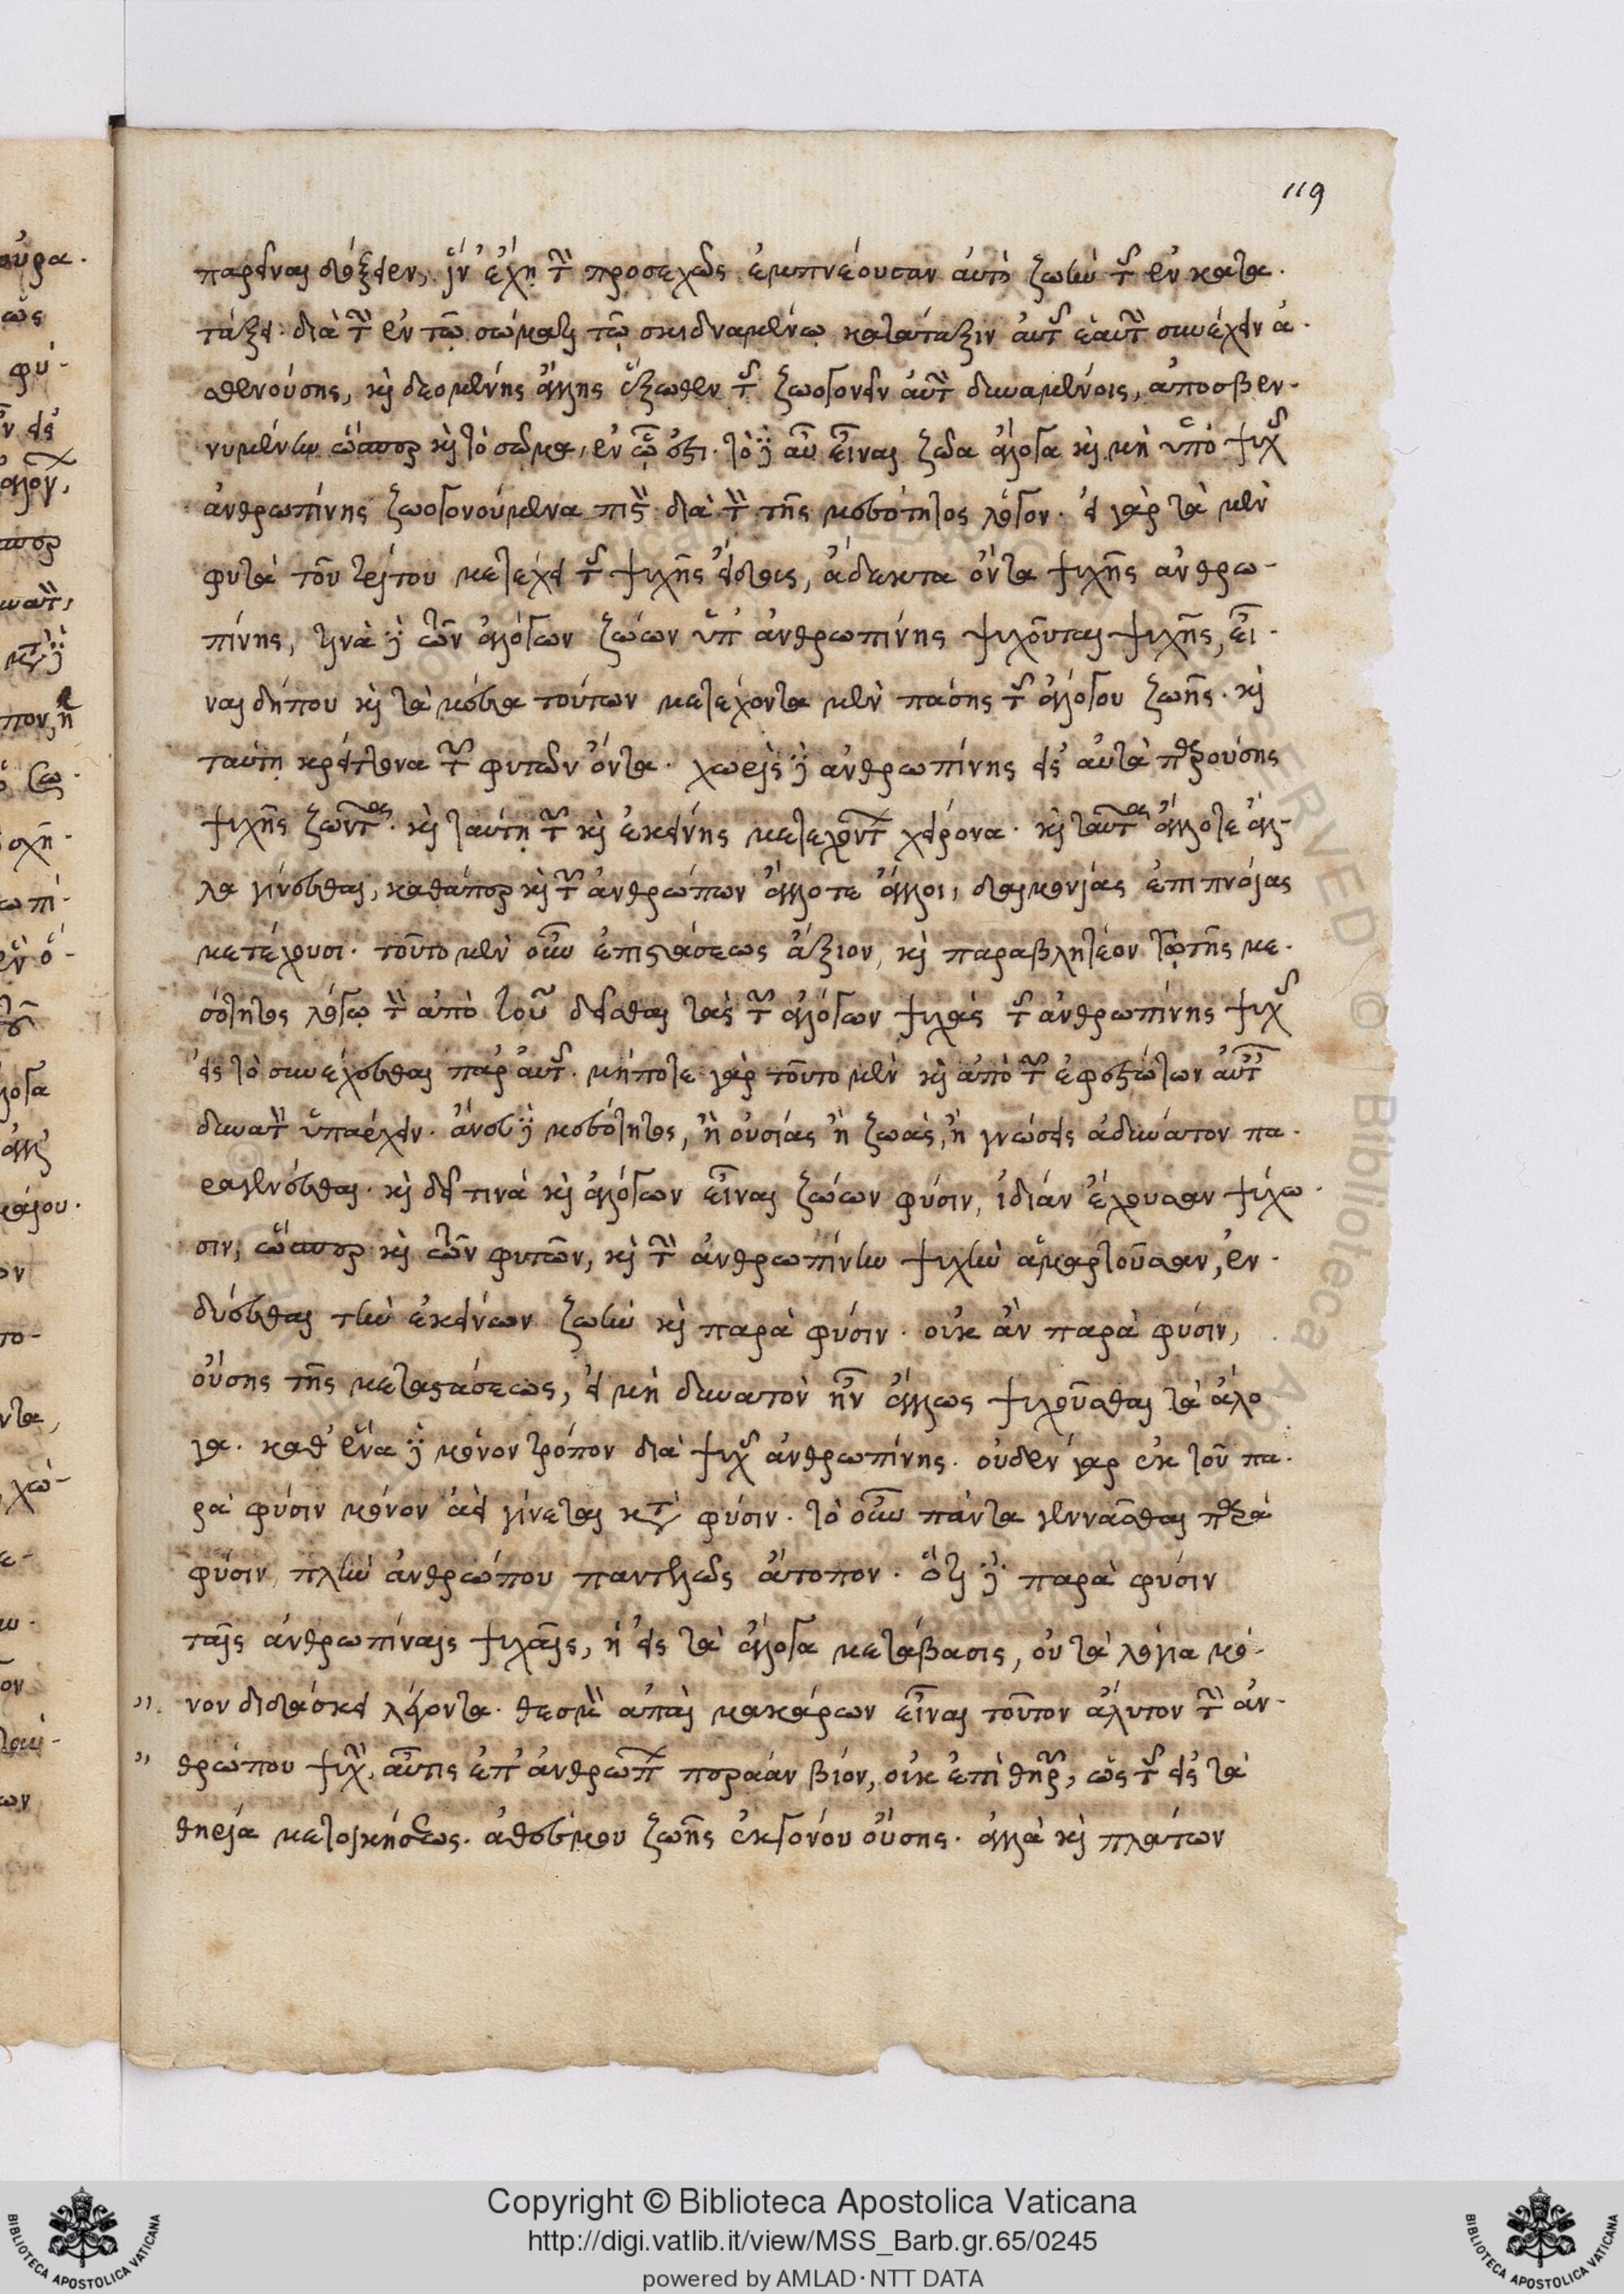 119
παρεῖναι ἔδοξεν, ἣν ἔχῃ τὴν προσεχῶς ἐμπνέουσαν αὐτὴν ζωὴν τῆς ἐν κατα-
τάξει. διὰ τὴν ἐν τῷ σώματι τῷ σκιδναμένῳ κατάταξιν αὐτῆς ἑαυτὴν συνέχειν ἀ-
σθενούσης, καὶ δεομένης ἄλλης ἔξωθεν τῆς ζωογονεῖν αὐτὴν δυναμένοις, ἀποσβεν-
νυμένην ὥσπερ καὶ τὸ σῶμα, ἐν ᾧ ἐστι. τὸ δὲ αὖ εἶναι ζῶα ἄλογα καὶ μὴ ὑπὸ ψυχῆς
ἀνθρωπίνης ζωογονούμενα πιστὸν διὰ τὸν τῆς μεσότητος λόγον. εἰ γὰρ τὰ μὲν
φυτὰ τοῦ τρίτου μετέχει τῆς ψυχῆς εἴδους, ἄδεκτα ὄντα ψυχῆς ἀνθρω-
πίνης, τινὰ δὲ τῶν ἀλόγων ζώων ὑπ' ἀνθρωπίνης ψυχοῦται ψυχῆς, εἶ-
ναι δήπου καὶ τὰ μέσα τούτων μετέχοντα μὲν πάσης τῆς ἀλόγου ζωῆς. καὶ
ταύτῃ κρείττονα τῶν φυτῶν ὄντα. χωρὶς δὲ ἀνθρωπίνης εἰς αὐτὰ παρούσης
ψυχῆς ζῶντα. καὶ ταύτῃ τῶν καὶ ἐκείνης μετεχόντων χείρονα. καὶ ταῦτα ἄλλοτε ἄλ-
λα γίνεσθαι, καθάπερ καὶ τῶν ἀνθρώπων ἄλλοτε ἄλλοι, δαιμονίας ἐπιπνοίας
μετέχουσι. τοῦτο μὲν οὖν ἐπιστάσεως ἄξιον, καὶ παραβλητέον τῷ τῆς με-
σότητος λόγῳ τὸν ἀπὸ τοῦ δεῖσθαι τὰς τῶν ἀλόγων ψυχὰς τῆς ἀνθρωπίνης ψυχῆς
εἰς τὸ συνέχεσθαι παρ' αὐτῆς. μήποτε γὰρ τοῦτο μὲν καὶ ἀπὸ τῶν ἐφεστώτων αὐτοῖς
δυνατὸν ὑπάρχειν. ἄνευ δὲ μεσότητος, ἢ οὐσίας ἢ ζωάς, ἢ γνώσεις ἀδύνατον πα-
ραγενέσθαι. καὶ δεῖ τινὰ καὶ ἀλόγων εἶναι ζώων φύσιν, ἰδίαν ἔχουσαν ψύχω-
σιν, ὥσπερ καὶ τῶν φυτῶν, καὶ τὴν ἀνθρωπίνην ψυχὴν ἁμαρτοῦσαν, ἐν-
δύεσθαι τὴν ἐκείνων ζωὴν καὶ παρὰ φύσιν. οὐκ ἂν παρὰ φύσιν,
οὔσης τῆς μεταστάσεως, εἰ μὴ δυνατὸν ἦν ἄλλως ψυχοῦσθαι τὰ ἄλο
γα. καθ' ἕνα δὲ μόνον τρόπον διὰ ψυχῆς ἀνθρωπίνης. οὐδὲν γὰρ ἐκ τοῦ πα-
ρὰ φύσιν μόνον ἀεὶ γίνεται κατὰ φύσιν. τὸ οὖν πάντα γεννᾶσθαι παρὰ
φύσιν πλὴν ἀνθρώπου παντελῶς ἄτοπον. ὅτι δὲ παρὰ φύσιν
ταῖς ἀνθρωπίναις ψυχαῖς, ἡ εἰς τὰ ἄλογα μετάβασις, οὐ τὰ λόγια μό-
νον διδάσκει λέγοντα. θεσμὸν ἀπαὶ μακάρων εἶναι τοῦτον ἄλυτον τὴν ἀν-
θρώπου ψυχὴν, αὖτις ἐπ' ἀνθρώπων περάαν βίον, οὐκ ἐπὶ θηρῶν, ὡς τῆς εἰς τὰ
θηρία μετοικήσεως. ἀθέσμου ζωῆς ἐκγόνου οὔσης. ἀλλὰ καὶ πλάτων
Copyright © Biblioteca Apostolica Vaticana
http://digi.vatlib.it/view/MSS_Barb.gr.65/0245
powered by AMLAD·NTT DATA